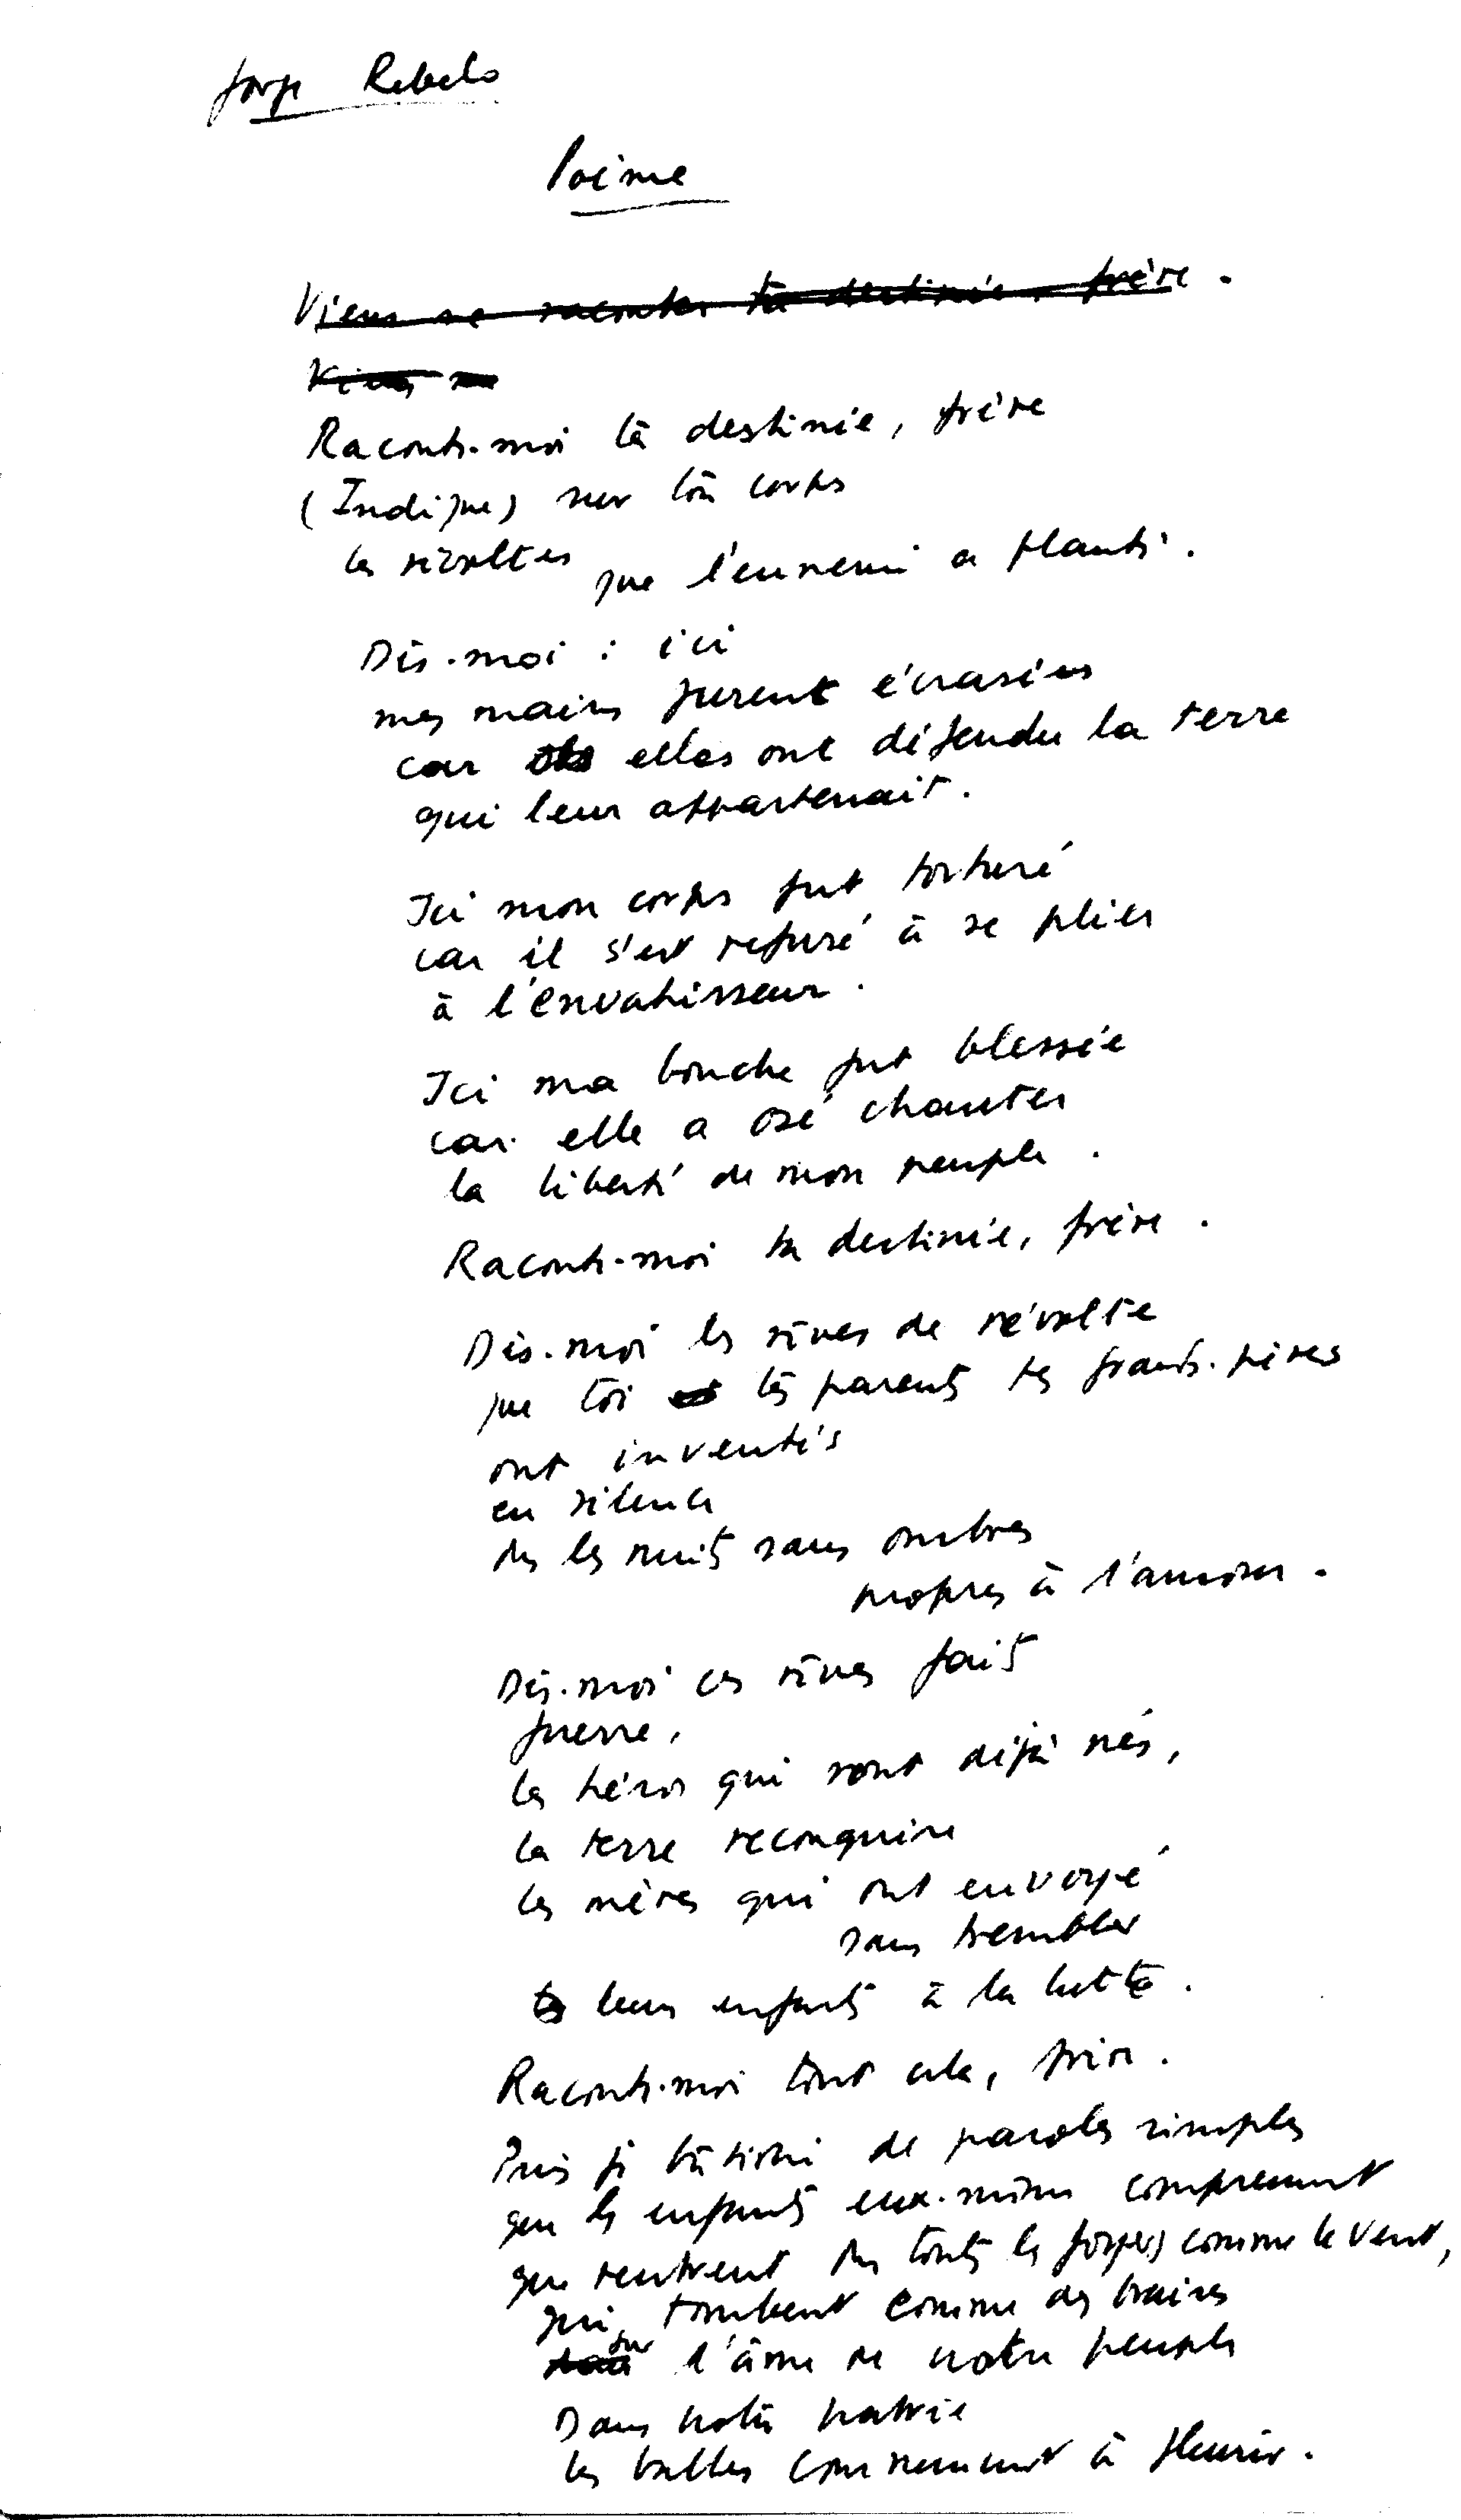 Jorge Rebelo
Poème
Viens me raconter ta destinée, frère.
Viens me
Raconte-moi ta destinée, frère
(Indique) sur ton corps
les révoltes que l'ennemi a planté.
Dis-moi : ici
mes mains furent écrasées
car elles ont défendu la terre
qui leur appartenait.
Ici mon corps fut torturé
car il s'est refusé à se plier
à l'envahisseur.
Ici ma bouche fut blessée
car elle a osé chanter
la liberté de mon peuple.
Raconte-moi ta destinée, frère.
Dis-moi les rêves de révolte
que toi et tes parents tes grands-pères
ont inventés
en silence
ds les nuits sans ombres
propres à l'amour.
Dis-moi ces rêves faits
guerre,
les héros qui sont déjà nés,
la terre reconquise
les mères qui ont envoyé
sans trembler
leurs enfants à la lutte.
Raconte-moi tout cela, frère.
Puis je bâtirai de paroles simples
que les enfants eux-mêmes comprennent
que rentrent ds toutes les comme le vent,
qui tombent comme des braises
sur l'âme de notre peuple
Dans notre patrie
les balles commencent à fleurir.